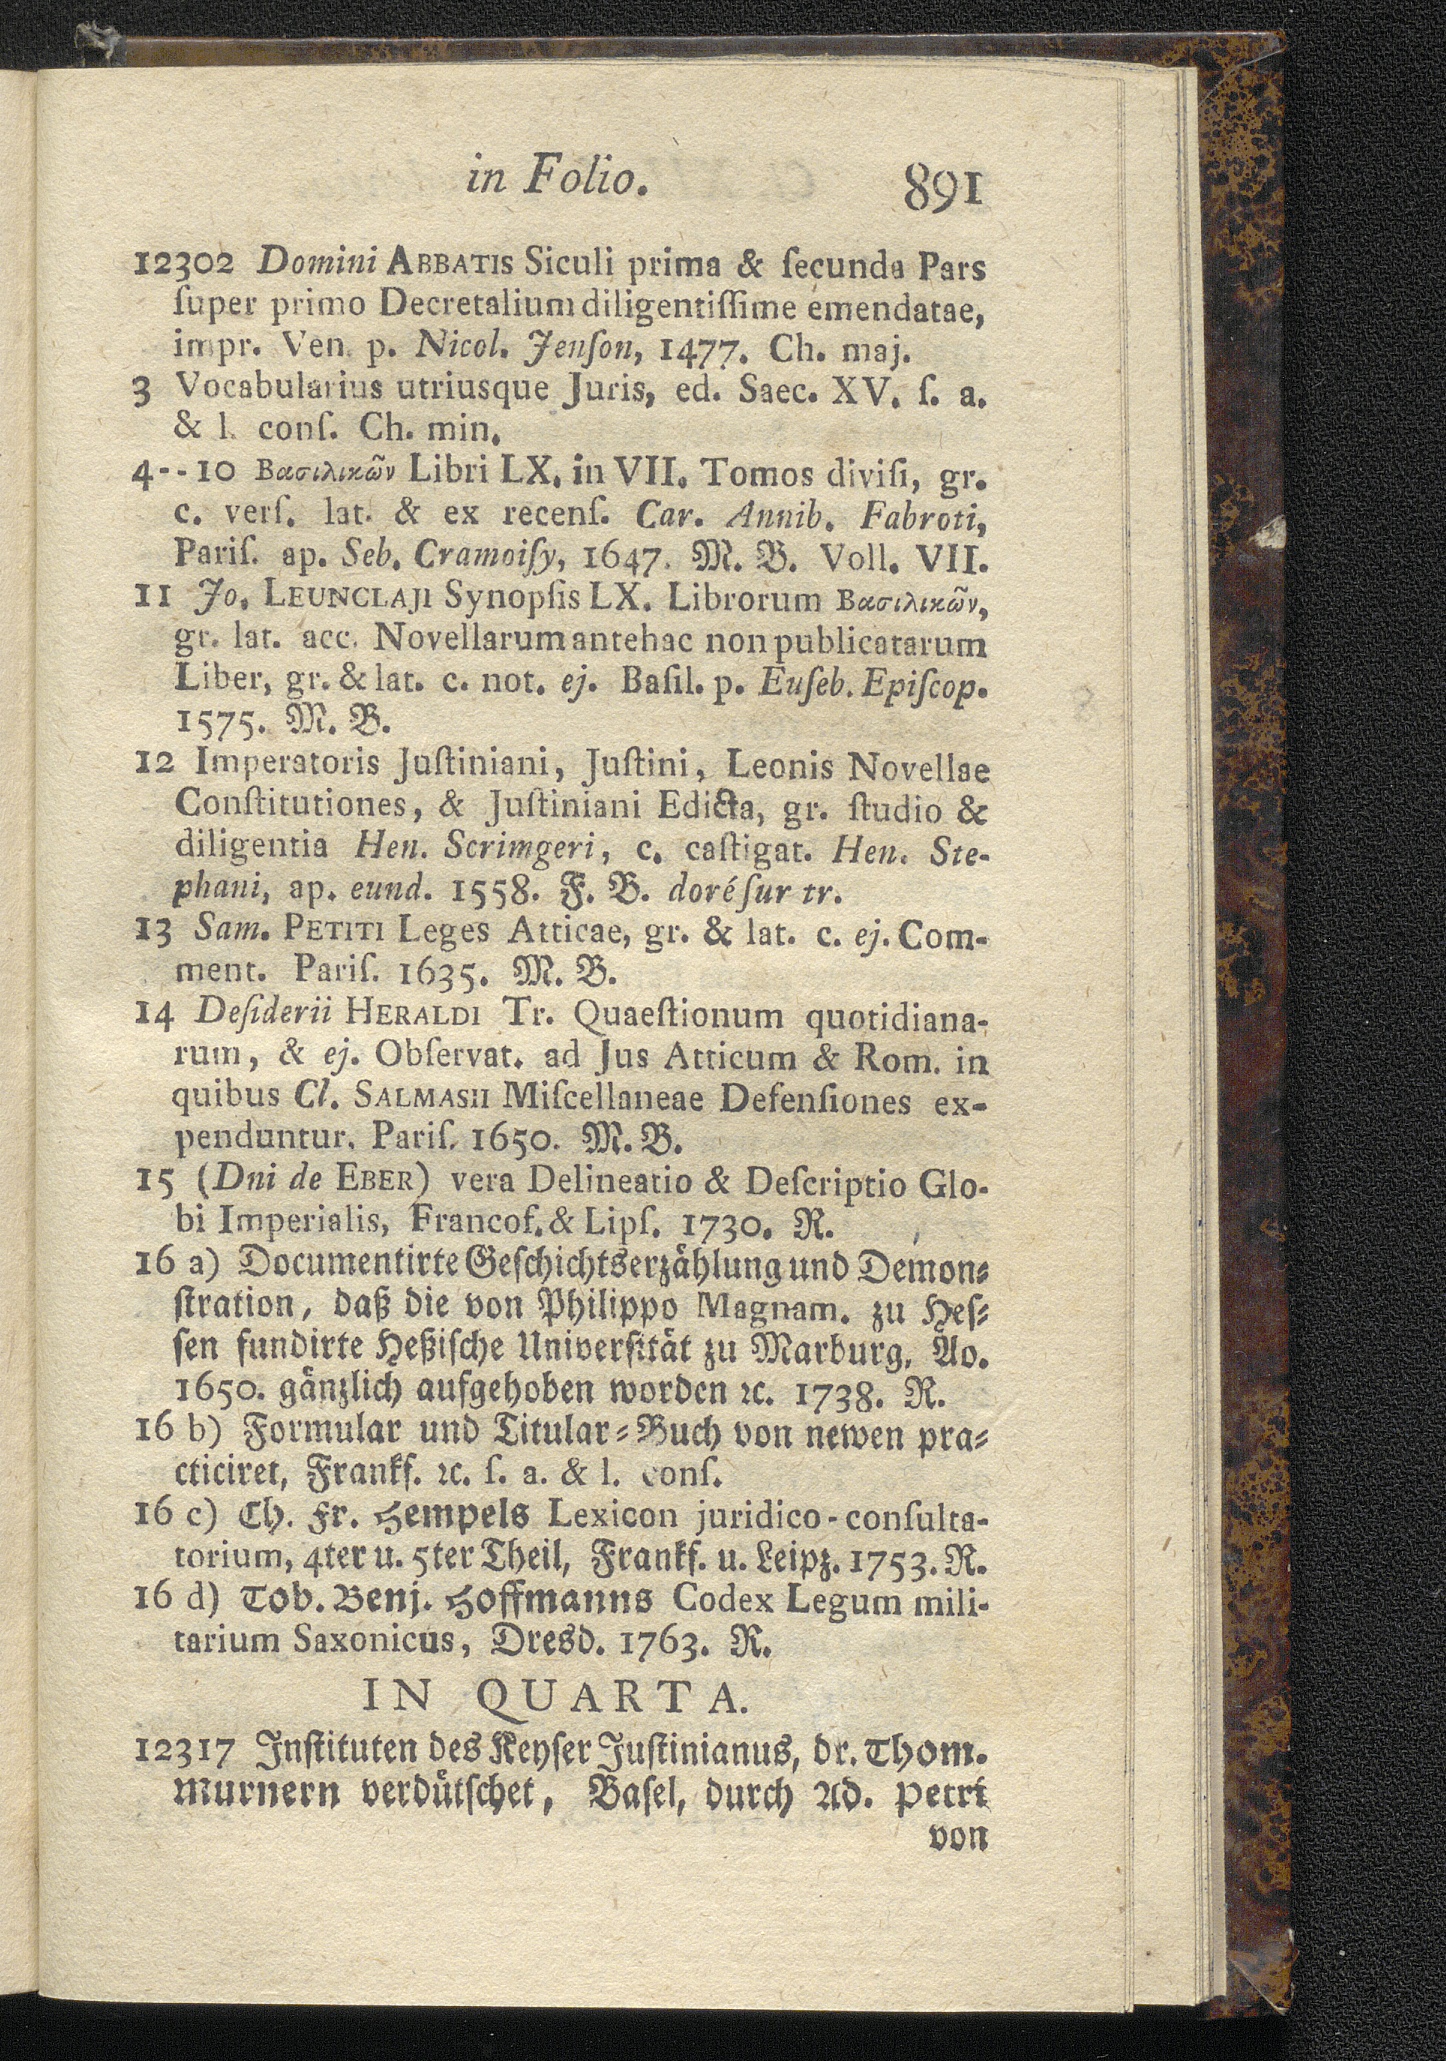 in Folio. 891
12302 Domini ABBATIS Siculi prima & ſecunda Pars
ſuper primo Decretalium diligentiſſime emendatae,
impr. Ven. p. Nicol. Jenſon, 1477. Ch. maj.
3 Vocabularius utriusque Juris, ed. Saec. XV. ſ. a.
& l. conſ. Ch. min.
4--10 Βασιλικῶν Libri LX. in VII. Tomos diviſi, gr.
c. verſ. lat. & ex recenſ. Car. Annib. Fabroti,
Pariſ. ap. Seb. Cramoiſy, 1647. M. B. Voll. VII.
11 Jo. LEUNCLAJI Synopſis LX. Librorum Βασιλικῶν,
gr. lat. acc. Novellarum antehac non publicatarum
Liber, gr. & lat. c. not. ej. Baſil. p. Euſeb. Epiſcop.
1575. M. B.
12 Imperatoris Juſtiniani, Juſtini, Leonis Novellae
Conſtitutiones, & Juſtiniani Edicta, gr. ſtudio &
diligentia Hen. Scrimgeri, c. caſtigat. Hen. Ste-
phani, ap. eund. 1558. F. B. doré ſur tr.
13 Sam. PETITI Leges Atticae, gr. & lat. c. ej. Com-
ment. Pariſ. 1635. M. B.
14 Deſiderii HERALDI Tr. Quaeſtionum quotidiana-
rum, & ej. Obſervat. ad Jus Atticum & Rom. in
quibus Cl. SALMASII Miſcellaneae Defenſiones ex-
penduntur. Pariſ. 1650. M. B.
15 (Dni de EBER) vera Delineatio & Deſcriptio Glo-
bi Imperialis, Francof. & Lipſ. 1730. R.
16 a) Documentirte Geſchichtserzählung und Demon-
ſtration, daß die von Philippo Magnam. zu Heſ-
ſen fundirte Heßiſche Univerſität zu Marburg, Ao.
1650. gänzlich aufgehoben worden ꝛc. 1738. R.
16 b) Formular und Titular-Buch von newen pra-
cticiret, Frankf. ꝛc. ſ. a. & l. conſ.
16 c) Ch. Fr. Hempels Lexicon juridico-conſulta-
torium, 4ter u. 5ter Theil, Frankf. u. Leipz. 1753. R.
16 d) Tob. Benj. Hoffmanns Codex Legum mili-
tarium Saxonicus, Dresd. 1763. R.
IN QUARTA.
12317 Inſtituten des Keyſer Juſtinianus, dr. Thom.
Murnern verdütſchet, Baſel, durch Ad. Petri
von